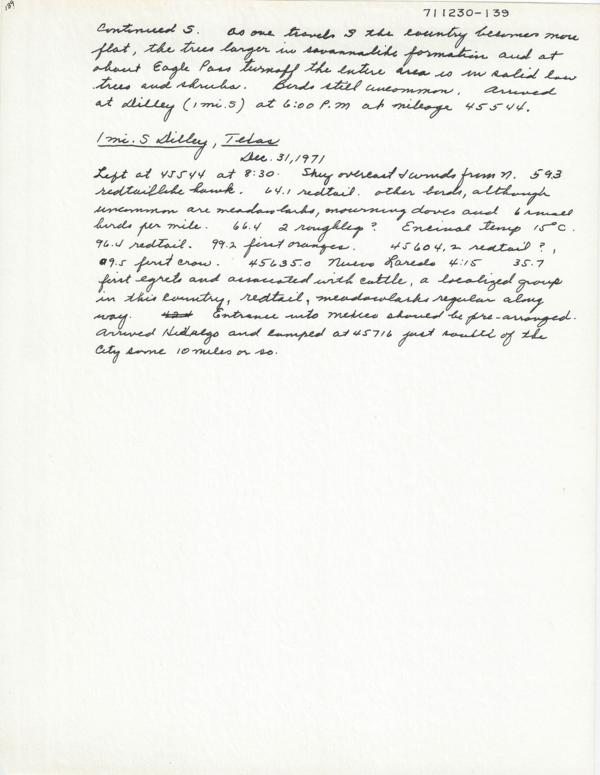 139
711230-139
Continued S. As one travels S the country becomes more
flat, the trees larger in savannalike formation and at
about Eagle Pass turnoff the entire area is in solid low
trees and shrubs. Birds still uncommon. Arrived
at Dilley (1 mi. S) at 6:00 P.M at mileage 45544.
1 mi. S Dilley, Texas
Dec. 31, 1971
Left at 45544 at 8:30. Sky overcast & winds from N. 59.3
redtaillike hawk. 64.1 redtail. other birds, although
uncommon are meadowlarks, mourning doves and 6 small
birds per mile. 66.4 2 roughleg? Encinal temp 15°C.
96.4 redtail. 99.2 first oranges. 45604.2 redtail?,
09.5 first crow. 45635.0 Nuevo Laredo 4:15 35.7
first egrets and associated with cattle, a localized group
in this country, redtail, meadowlarks regular along
way. Entrance into Mexico should be pre-arranged.
Arrived Hidalgo and camped at 45716 just south of the
City some 10 miles or so.